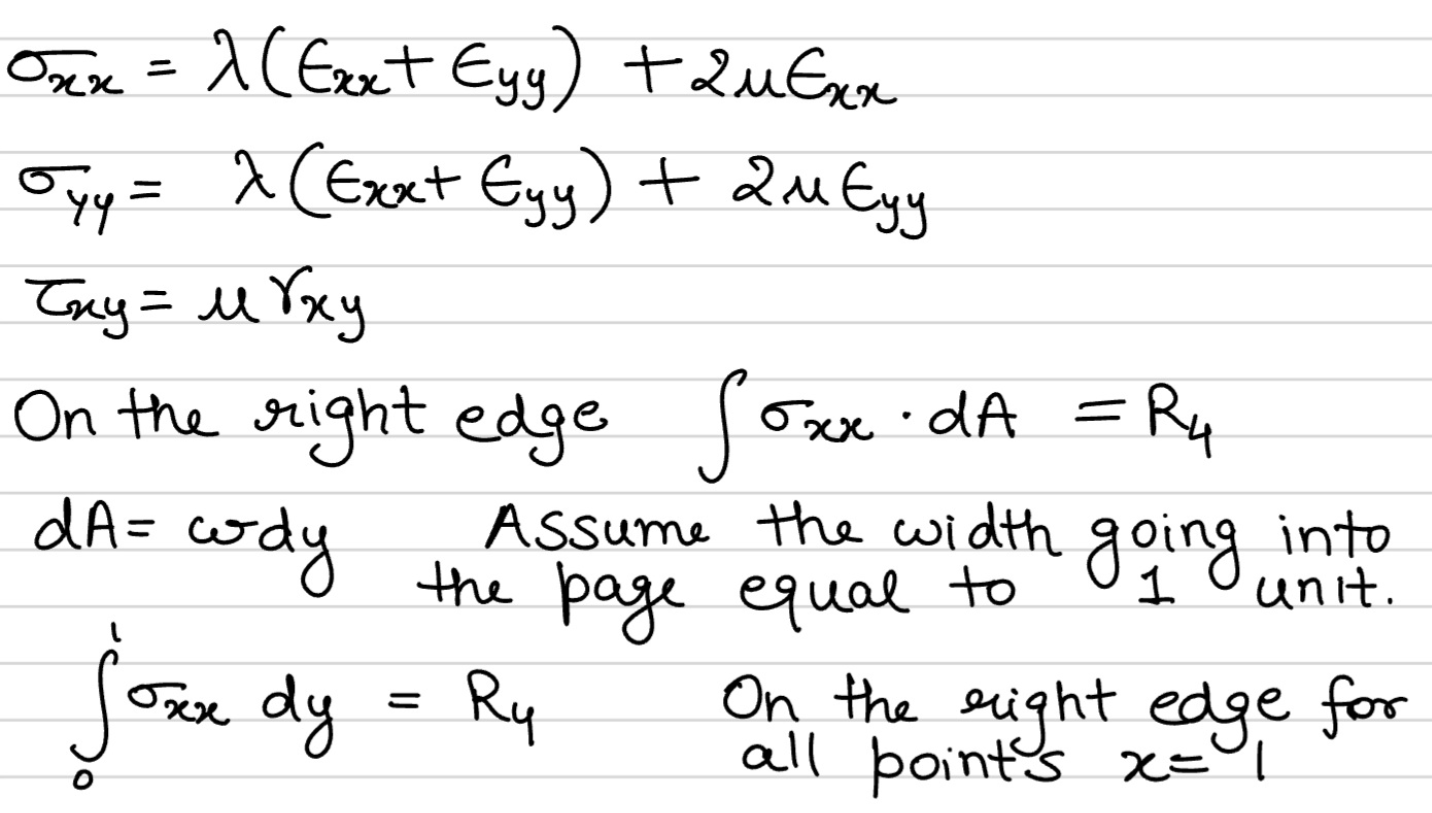 σxx = λ(ϵxx + ϵyy) + 2μϵxx
σyy = λ(ϵxx + ϵyy) + 2μϵyy
τxy = μγxy
On the right edge ∫σxx · dA = R4
dA = wdy Assume the width going into
the page equal to 1 unit.
∫₀¹ σxx dy = R4 On the right edge for
all points x = 1